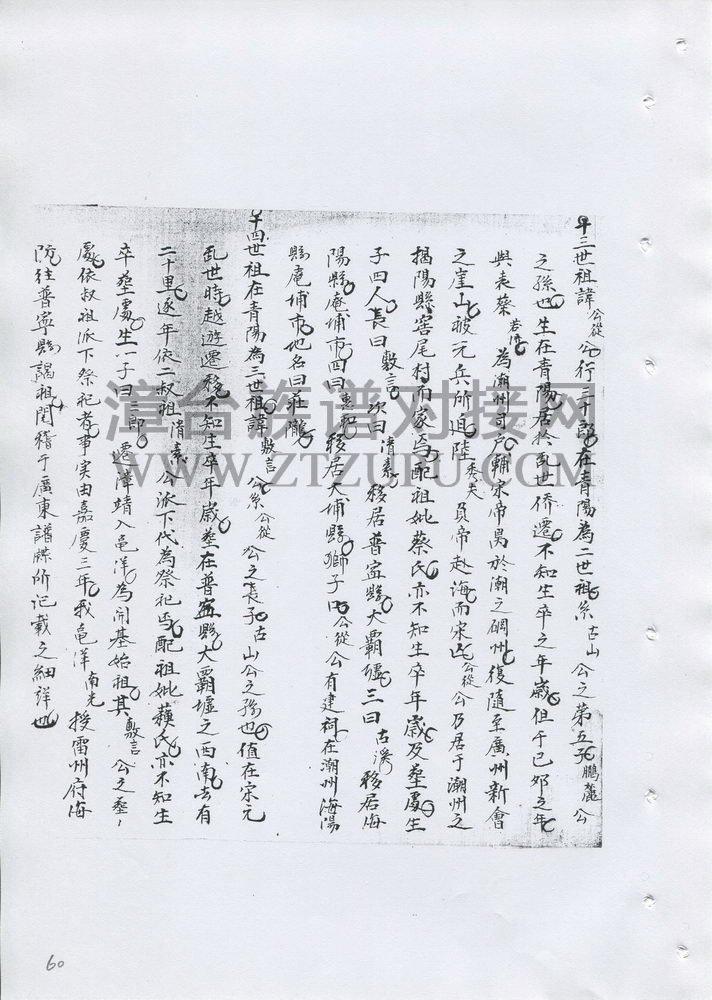 十三世祖諱公從公行三十郎在青陽為二世祖系古山公之第五子鵬麓公
之孫也生在青陽居於乱世侨遷不知生卒之年歲但于己卯之年
與表蔡若傅為潮州司户輔宋帝昺於潮之碙州復隨至廣州新會
之崖山被元兵所迫陸秀夫負帝赴海而宋亡公從公乃居于潮州之
揭陽縣窖尾村而家焉配祖妣蔡氏亦不知生卒年歲及塟處生
子四人長曰敷言次曰清素移居普寧縣大霸墟三曰古溪移居海
陽縣庵埔市四曰惠和移居大埔縣獅子口公從公有建祠在潮州海陽
縣庵埔市地名曰莊隴
十四世祖在青陽為三世祖諱敷言公系公從公之長子古山公之孫也值在宋元
乱世時越遊遷移不知生卒年歲塟在普寧縣大霸墟之西南去有
二十里逐年依二叔祖清素公派下代為祭祀焉配祖妣蘇氏亦不知生
卒塟處生一子曰三郎遷漳靖入龟洋為開基始祖其敷言公之塟
處依叔祖派下祭祀者事実由嘉慶三年我龟洋南光授雷州府海
防往普寧縣謁祖閱稽于廣東譜牒所记載之細詳也
60
漳台族谱对接网
WWW.ZTZUPU.COM